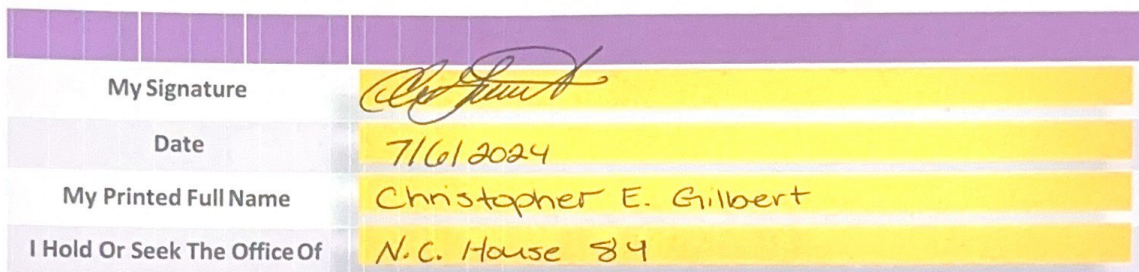 My Signature
Date 7/6/2024
My Printed Full Name Christopher E. Gilbert
I Hold Or Seek The Office Of N.C. House 84